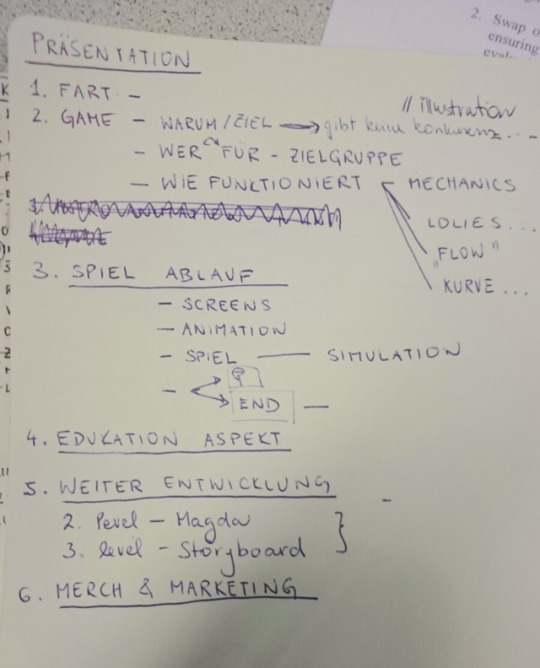 2. Swap o
ensuring
PRÄSENTATION
1. FART -
// illustration
2. GAME - WARUM / ZIEL → gibt keine konkurenz .. -
- WER FÜR - ZIELGRUPPE
- WIE FUNKTIONIERT MECHANICS
LOLIES ...
"FLOW"
KURVE ...
3. SPIEL ABLAUF
- SCREENS
- ANIMATION
- SPIEL — SIMULATION
-
END —
4. EDUKATION ASPEKT
5. WEITER ENTWICKLUNG -
2. Pevel - Magda
3. level - Storyboard
6. MERCH & MARKETING